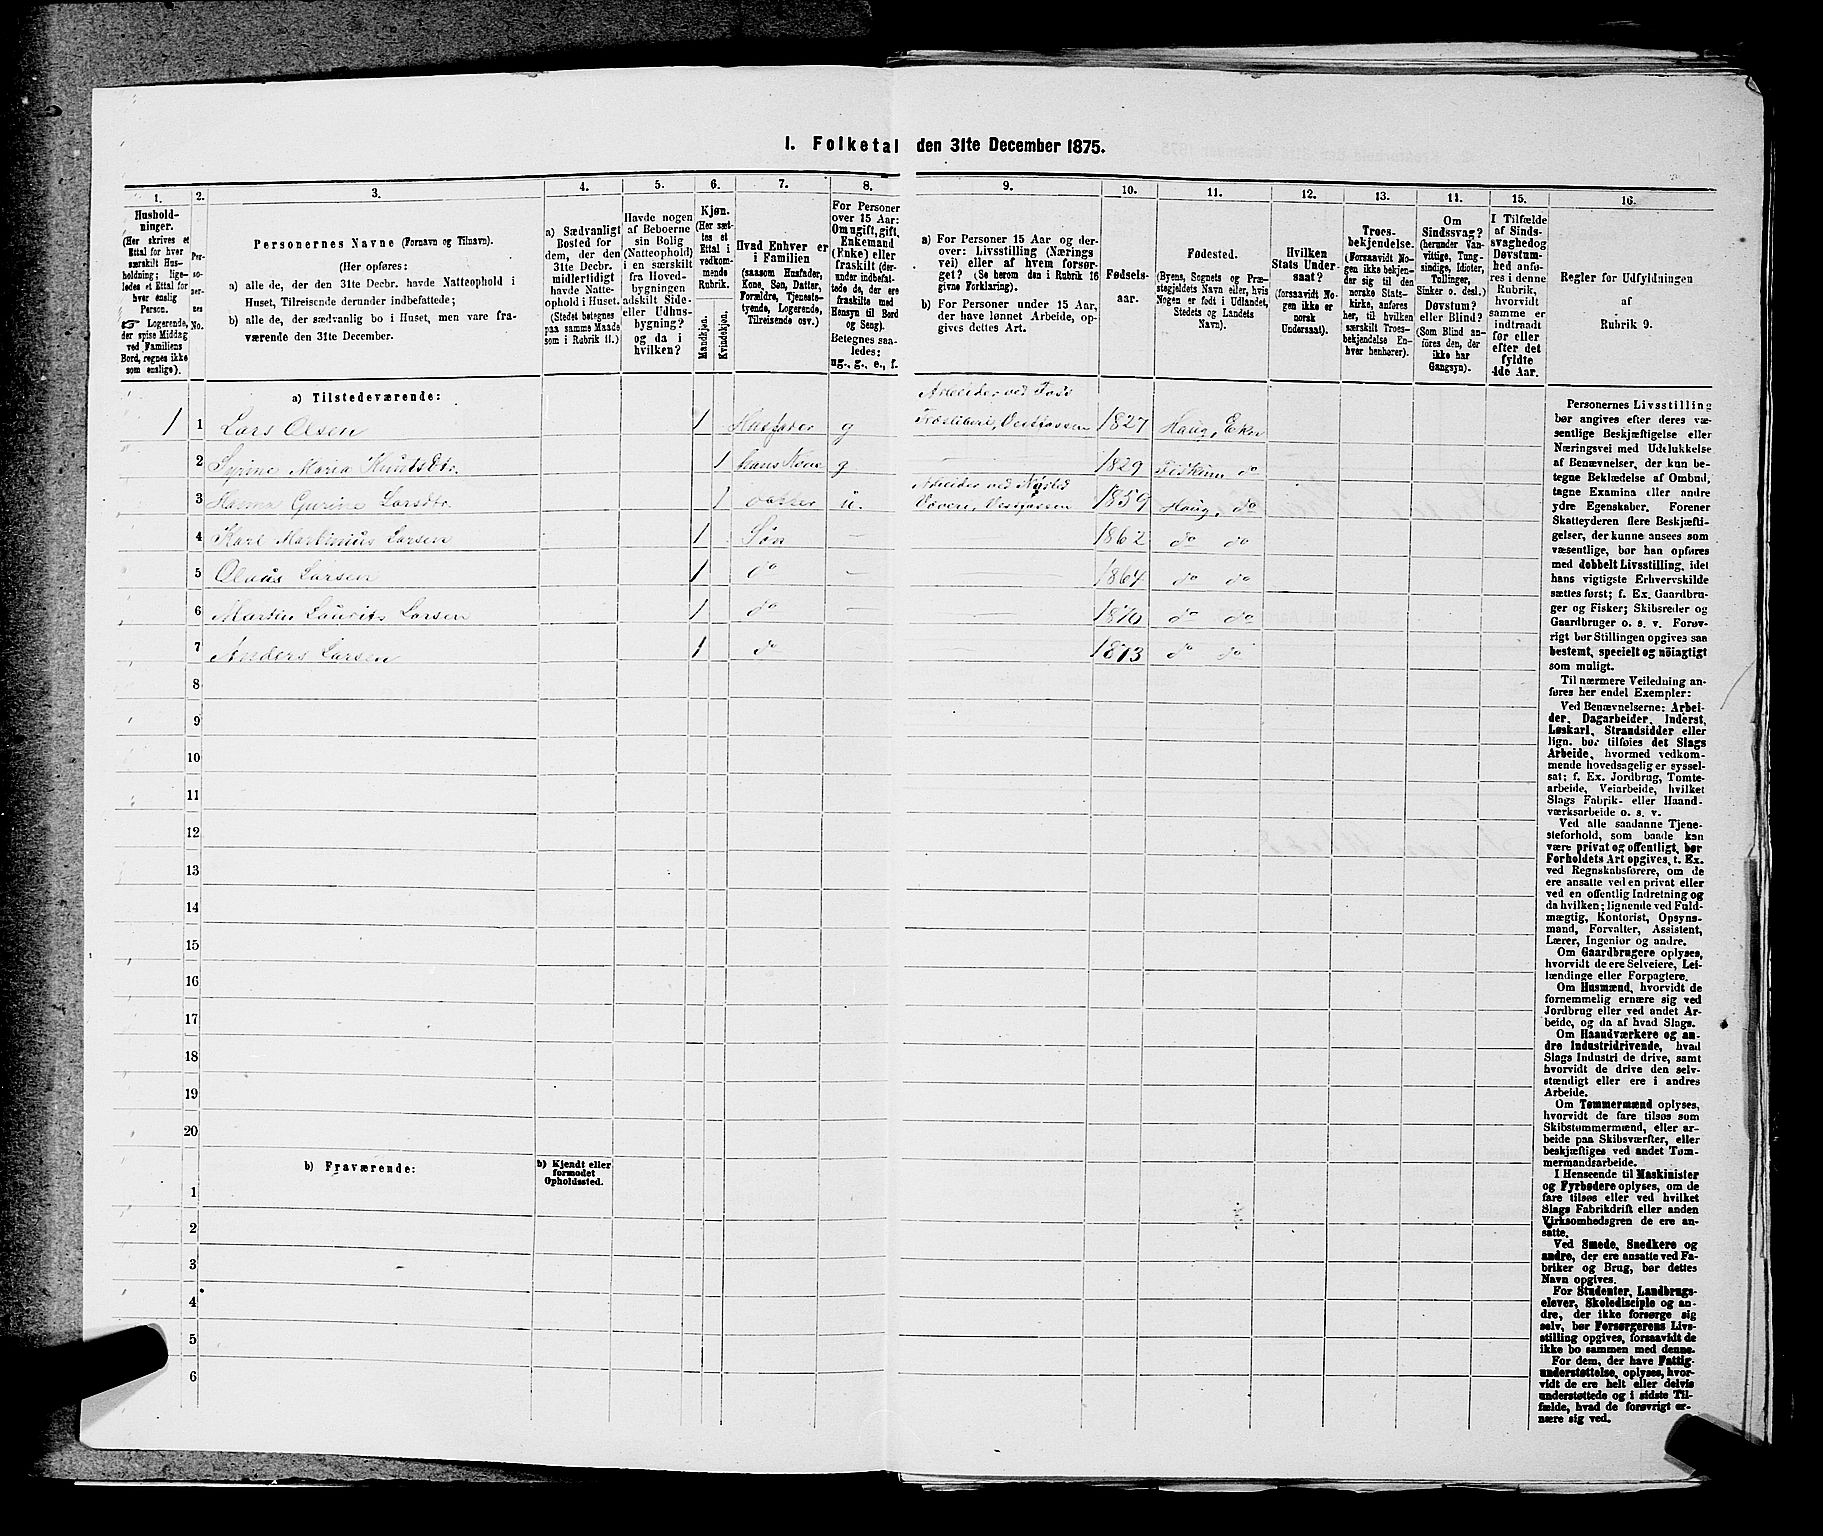 1. Folketal den 31te December 1875.
1.
Hushold-
ninger.
(Her skrives et
Ettal for hver
særskilt Hus-
holdning; lige-
ledes et Ettal for
hver enslig
Person.
☞ Logerende,
der spise Middag
ved Familiens
Bord, regnes ikke
som enslige).
2.
Per-
so-
ner-
nes
No.
3.
Personernes Navne (Fornavn og Tilnavn).
(Her opføres:
a) alle de, der den 31te Decbr. havde Natteophold i
Huset, Tilreisende derunder indbefattede;
b) alle de, der sædvanlig bo i Huset, men vare fra-
værende den 31te December.
4.
a) Sædvanligt
Bosted for
dem, der den
31te Decbr.
midlertidigt
havde Natte-
ophold i Huset.
(Stedet betegnes
paa samme Maade
som i Rubrik 11.)
5.
Havde nogen
af Beboerne
sin Bolig
(Natteophold)
i en særskilt
fra Hoved-
bygningen
adskilt Side-
eller Udhus-
bygning?
og da i
hvilken?
6.
Kjøn.
(Her sæt-
tes et
Ettal i
vedkom-
mende
Rubrik.
Mandkjøn.
Kvindekjøn.
7.
Hvad Enhver er
i Familien
(saasom Husfader,
Kone, Søn, Datter,
Forældre, Tjeneste-
tyende, Logerende,
Tilreisende osv.)
8.
For Personer
over 15 Aar:
Om ugift, gift,
Enkemand
(Enke) eller
fraskilt (der-
under indbefat-
tede de, der ere
fraskilte med
Hensyn til Bord
og Seng).
Betegnes saa-
ledes:
ug., g., e., f.
9.
a) For Personer 15 Aar og der-
over: Livsstilling (Nærings-
vei) eller af hvem forsør-
get? (Se herom den i Rubrik 16
givne Forklaring).
b) For Personer under 15 Aar,
der have lønnet Arbeide, op-
gives dettes Art.
10.
Fødsels-
aar.
11.
Fødested.
(Byens, Sognets og Præ-
stegjeldets Navn eller, hvis
Nogen er født i Udlandet,
Stedets og Landets
Navn).
12.
Hvilken
Stats Under-
saat?
(forsaavidt No-
gen ikke er
norsk
Undersaat).
13.
Troes-
bekjendelse.
(Forsaavidt No-
gen ikke bekjen-
der sig til den
norske Stats-
kirke, anføres
her, til hvilken
særskilt Troes-
bekjendelse En-
hver henhører).
14.
Om
Sindssvag?
(herunder Van-
vittige, Tung-
sindige, Idioter,
Tullinger,
Sinker o. desl.)
Døvstum?
eller Blind?
(Som Blind an-
føres den, der
ikke har
Gangsyn).
15.
I Tilfælde
af Sinds-
svaghed og
Døvstum-
hed anfø-
res i denne
Rubrik,
hvorvidt
samme er
indtraadt
før eller
efter det
fyldte
4de Aar.
16.
Regler for Udfyldningen
af
Rubrik 9.
a) Tilstedeværende:
Arbeider ved Foss
1 1 Lars Olsen 1 Husfader g Træsliberi, Vestfossen 1827 Haug, Eker
2 Syrine Maria Knutsdtr. 1 hans Kone g — 1829 Fiskum do
Arbeider ved
3 Hanna Gurine Larsdtr. 1 Datter u. Væveri, Vestfossen 1859 Haug, do
4 Karl Martinius Larsen 1 Søn — 1862 do do
5 Olaus Larsen 1 do — 1864 do do
6 Martin Laurits Larsen 1 do — 1870 do do
7 Anders Larsen 1 do 1873 do do
8
9
10
11
12
13
14
15
16
17
18
19
20
b) Fraværende:
b) Kjendt eller
formodet
Opholdssted.
1
2
3
4
5
6
Personernes Livsstilling
bør angives efter deres væ-
sentlige Beskjæftigelse eller
Næringsvei med Udelukkelse
af Benævnelser, der kun be-
tegne Beklædelse af Ombud,
tagne Examina eller andre
ydre Egenskaber. Forener
Skatteyderen flere Beskjæfti-
gelser, der kunne ansees som
væsentlige, bør han opføres
med dobbelt Livsstilling, idet
hans vigtigste Erhvervskilde
sættes først; f. Ex. Gaardbru-
ger og Fisker; Skibsreder og
Gaardbruger o. s. v. Forøv-
rigt bør Stillingen opgives saa
bestemt, specielt og nöiagtigt
som muligt.
Til nærmere Veiledning an-
føres her endel Exempler:
Ved Benævnelserne: Arbei-
der, Dagarbeider, Inderst,
Løskarl, Strandsidder eller
lign. bør tilføies det Slags
Arbeide, hvormed vedkom-
mende hovedsagelig er syssel-
sat; f. Ex. Jordbrug, Tomte-
arbeide, Veiarbeide, hvilket
Slags Fabrik- eller Haand-
værksarbeide o. s. v.
Ved alle saadanne Tjene-
steforhold, som baade kan
være privat og offentligt, bør
Forholdets Art opgives, t. Ex.
ved Regnskabsførere, om de
ere ansatte ved en privat eller
ved en offentlig Indretning og
da hvilken; lignende ved Fuld-
mægtig, Kontorist, Opsyns-
mand, Forvalter, Assistent,
Lærer, Ingeniør og andre.
Om Gaardbrugere oplyses,
hvorvidt de ere Selveiere, Lei-
lændinge eller Forpagtere.
Om Husmænd, hvorvidt de
fornemmelig ernære sig ved
Jordbrug eller ved andet Ar-
beide, og da af hvad Slags.
Om Haandværkere og an-
dre Industridrivende, hvad
Slags Industri de drive, samt
hvorvidt de drive den selv-
stændigt eller ere i andres
Arbeide.
Om Tømmermænd oplyses,
hvorvidt de fare tilsøs som
Skibstømmermænd, eller ar-
beide paa Skibsværfter, eller
beskjæftiges ved andet Tøm-
mermandsarbeide.
I Henseende til Maskinister
og Fyrbødere oplyses, om de
fare tilsøs eller ved hvilket
Slags Fabrikdrift eller anden
Virksomhedsgren de ere an-
satte.
Ved Smede, Snedkere og
andre, der ere ansatte ved Fa-
briker og Brug, bør dettes
Navn opgives.
For Studenter, Landbrugs-
elever, Skoledisciple og an-
dre, der ikke forsørge sig
selv, bør Forsørgerens Livs-
stilling opgives, forsaavidt de
ikke bo sammen med denne.
For dem, der have Fattig-
understøttelse, oplyses, hvor-
vidt de ere helt eller delvis
understøttede og i sidste Til-
fælde, hvad de forøvrigt er-
nære sig ved.